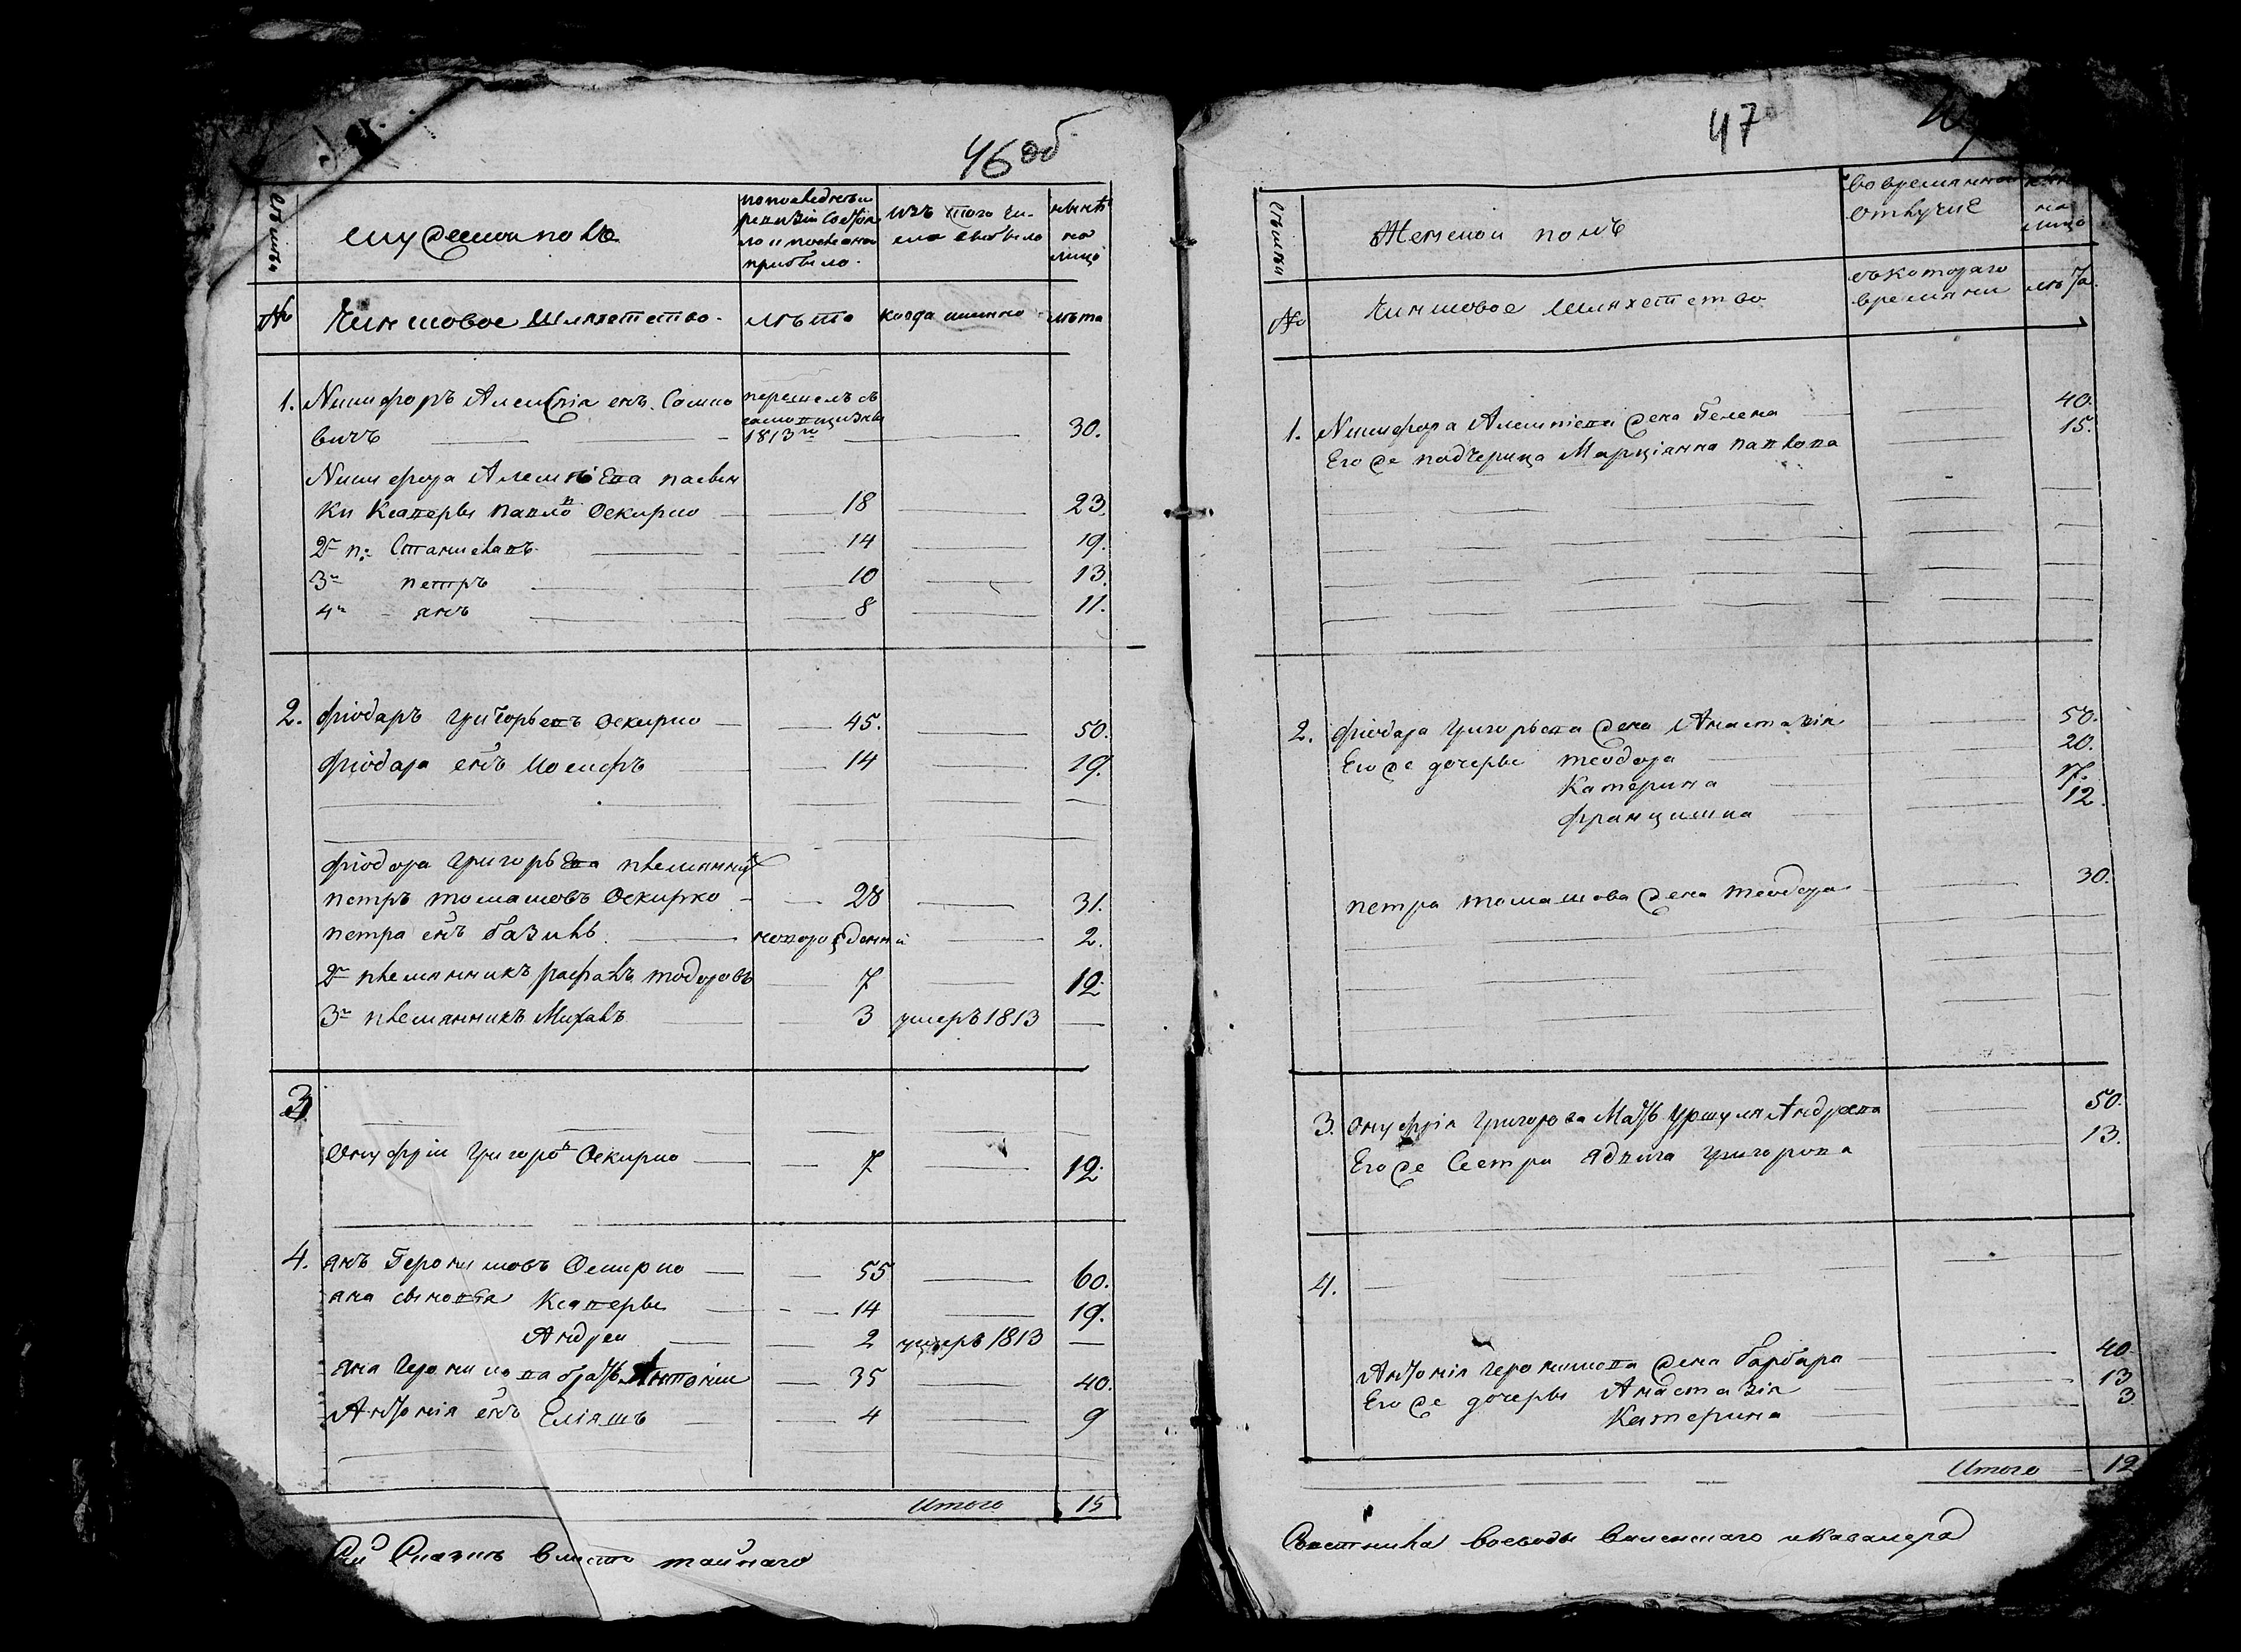 46 об
семьи
мужескои полъ
по последнеи
ревизіи состоя
ло и после онои
прибыло.
изъ того чи-
сла выбыло
ныне
на
лицо
№
Чиншовое шляхетство.
лѣта
когда именно
лѣта
1. Никифоръ Алексіевъ сынъ
вичъ
перешелъ съ
1813го
30.
Никифора пасын
ки Ксаверы Павло въ Оскирко 18 23.
2й п: Станиславъ 14 19.
3й петръ 10 13.
4й янъ 8 11.
2. фіодаръ григорьевъ Оскирко 45. 50.
фіодара снъ Іосифъ 14 19.
фіодора григорьева племянникъ
петръ томашовъ Оскирко 28 31.
петра снъ базиль новорожденный 2.
2й племянникъ рафалъ тодоровъ 7 12.
3й племянникъ Михалъ 3 умеръ 1813
3.
Онуфріи григоровъ Оскирко 7 12.
4. янъ Геронимовъ Оскирко 55 60.
яна сыновья Ксаверы 14 19.
Андреи 2 умеръ 1813
яна геронимова братъ Антоніи 35 40.
Антонія снъ Еліяшъ 4 9
Итого 15
Сіи Сказки вместо таинаго
47
семьи
Женскои полъ
во временнои
отлучке
на
лицо
№
Чиншовое шляхетство
съ котораго
времяни
лѣта
1. Никифора жена Гелена 40.
Его же подчерица Марціянна павлова 15.
2. фіодара григорьева жена Анастазія 50.
Его же дочеры теодора 20.
Катерина 17.
францишка 12.
петра томашова жена теодора 30.
3. Онуфрія григорова Мать Уршуля Андреева 50.
Его же Сестра ядвига григорова 13.
4.
Антонія геронимова жена барбара 40.
Его же дочеры Анастазія 13
Катерина 3
Итого 12
Советника воеводы виленскаго и кавалера